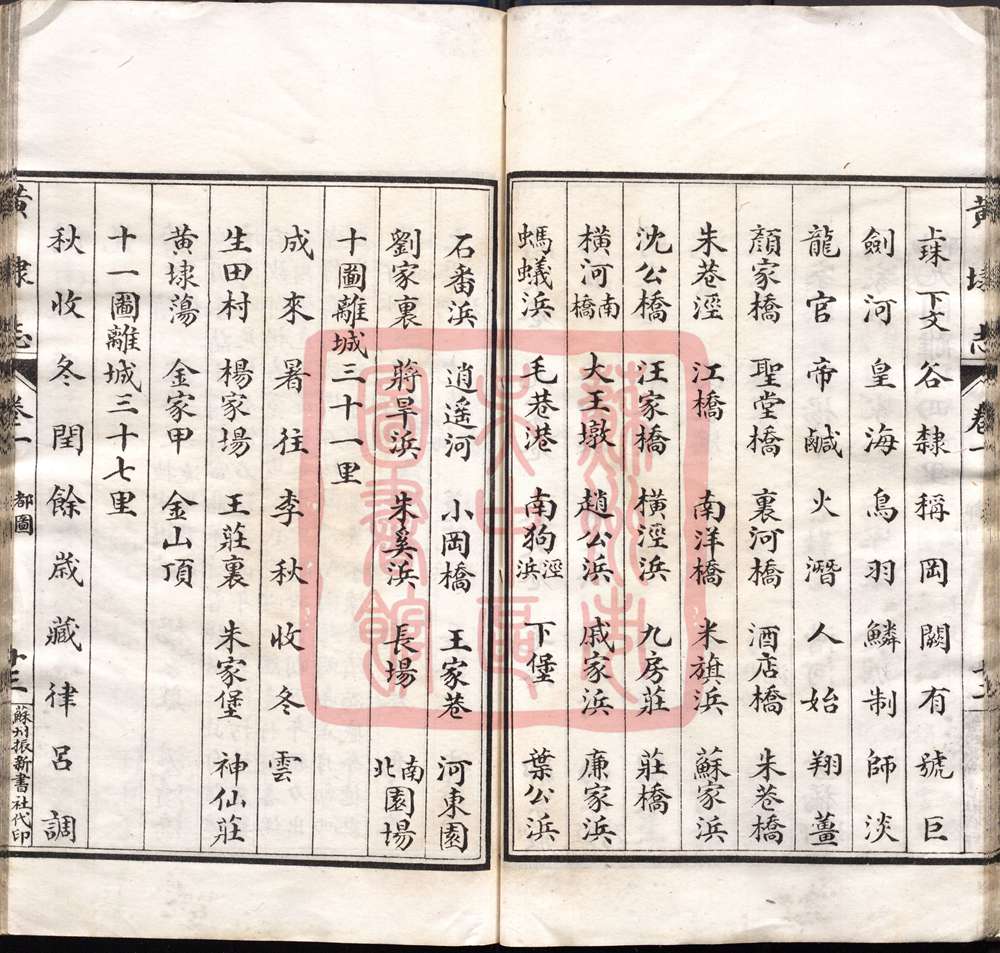 黃埭志 卷一 十二
上珠下文谷隸稱岡闕有號巨
劍河皇海鳥羽鱗制師淡
龍官帝鹹火潛人始翔薑
顏家橋 聖堂橋 裏河橋 酒店橋 朱巷橋
朱巷涇 江橋 南洋橋 米旗浜 蘇家浜
沈公橋 汪家橋 橫涇浜 九房莊 莊橋
橫河南橋 大王墩 趙公浜 戚家浜 廉家浜
螞蟻浜 毛巷港 南狗涇浜 下堡 葉公浜
石番浜 逍遙河 小岡橋 王家巷 河東園
劉家裏 蔣旱浜 朱奚浜 長場 南北園場
十圖離城三十一里
成來暑往李秋收冬雲
生田村 楊家場 王莊裏 朱家堡 神仙莊
黃埭蕩 金家甲 金山頂
十一圖離城三十七里
秋收冬閏餘歲藏律呂調
黃埭志 卷一 都圖 十三 蘇州振新書社代印
蘇州市
吳中區
圖書館